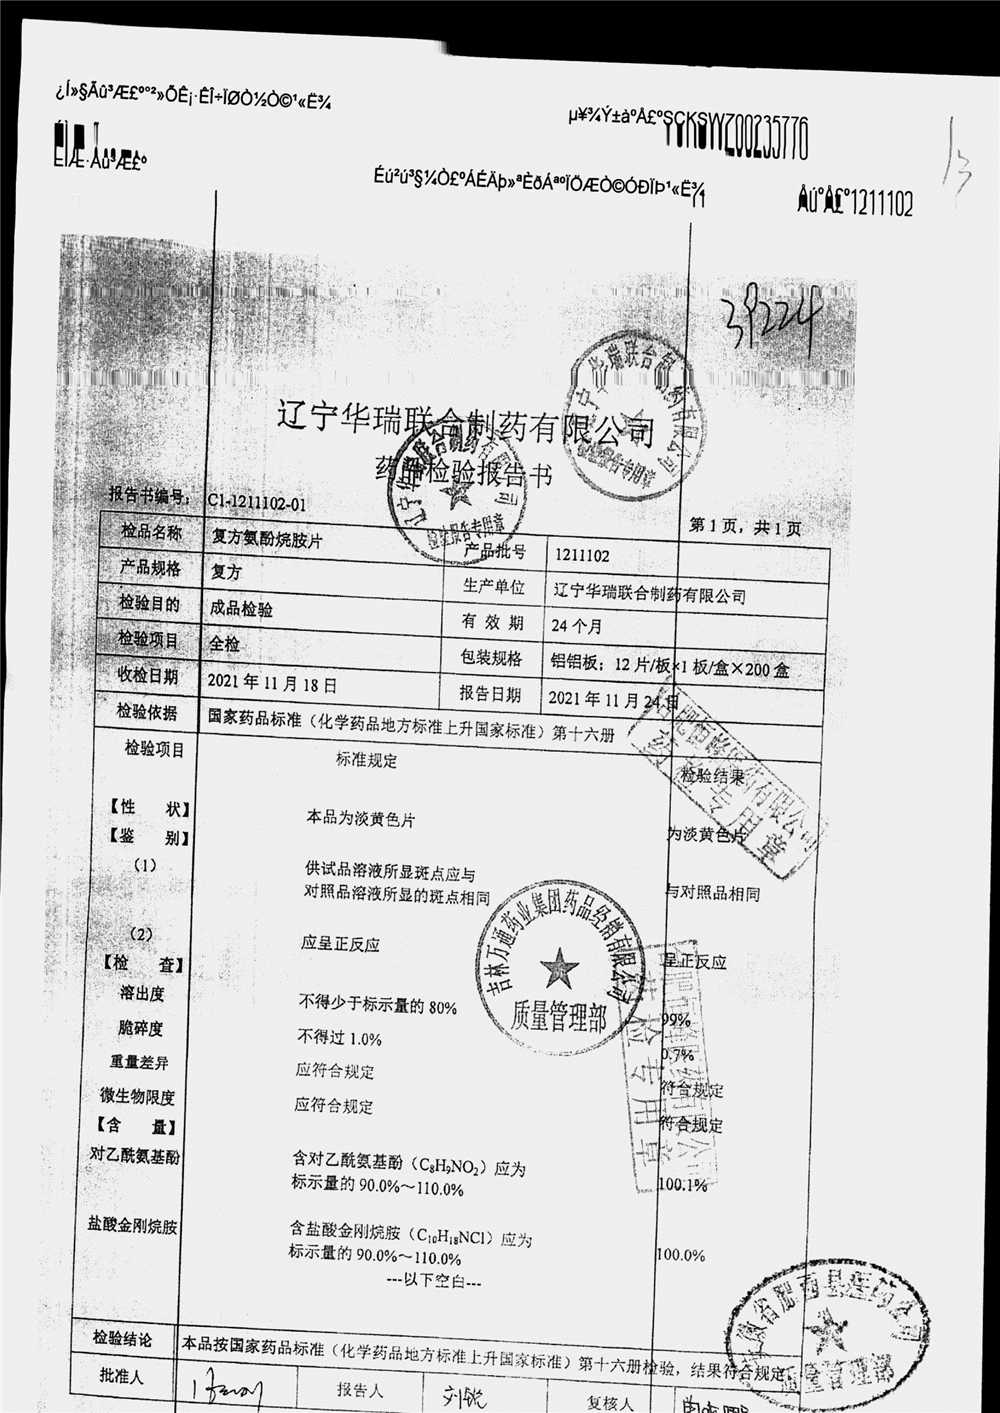 ¿Í»§Ãû³Æ£º°²»ÕÊ¡·ÊÎ÷ÏØÒ½Ò©¹«Ë¾
µ¥¾Ý±àºÅ£ºSCKSWZ00235776
ÉÌÆ·Ãû³Æ£º
Éú²ú³§¼Ò£ºÁÉÄþ»ªÈðÁªºÏÖÆÒ©ÓÐÏÞ¹«Ë¾
ÅúºÅ£º1211102
39224
辽宁华瑞联合制药有限公司
药品检验报告书
报告书编号： C1-1211102-01
第1页，共1页
检品名称 复方氨酚烷胺片 产品批号 1211102
产品规格 复方 生产单位 辽宁华瑞联合制药有限公司
检验目的 成品检验 有 效 期 24个月
检验项目 全检 包装规格 铝铝板；12片/板×1板/盒×200盒
收检日期 2021年11月18日 报告日期 2021年11月24日
检验依据 国家药品标准（化学药品地方标准上升国家标准）第十六册
检验项目 标准规定 检验结果
【性 状】 本品为淡黄色片 为淡黄色片
【鉴 别】
（1） 供试品溶液所显斑点应与
对照品溶液所显的斑点相同 与对照品相同
（2） 应呈正反应 呈正反应
【检 查】
溶出度 不得少于标示量的80% 99%
脆碎度 不得过1.0% 0.7%
重量差异 应符合规定 符合规定
微生物限度 应符合规定 符合规定
【含 量】
对乙酰氨基酚 含对乙酰氨基酚（C₈H₉NO₂）应为
标示量的90.0%～110.0% 100.1%
盐酸金刚烷胺 含盐酸金刚烷胺（C₁₀H₁₈NCl）应为
标示量的90.0%～110.0% 100.0%
---以下空白---
检验结论 本品按国家药品标准（化学药品地方标准上升国家标准）第十六册检验，结果符合规定
批准人 报告人 刘锐 复核人
辽宁华瑞联合制药有限公司
检验报告专用章
辽宁华瑞联合制药有限公司
检验报告专用章
药检专用章
吉林万通药业集团药品经销有限公司
质量管理部
药检专用章
安徽省肥西县医药公司
质量管理部